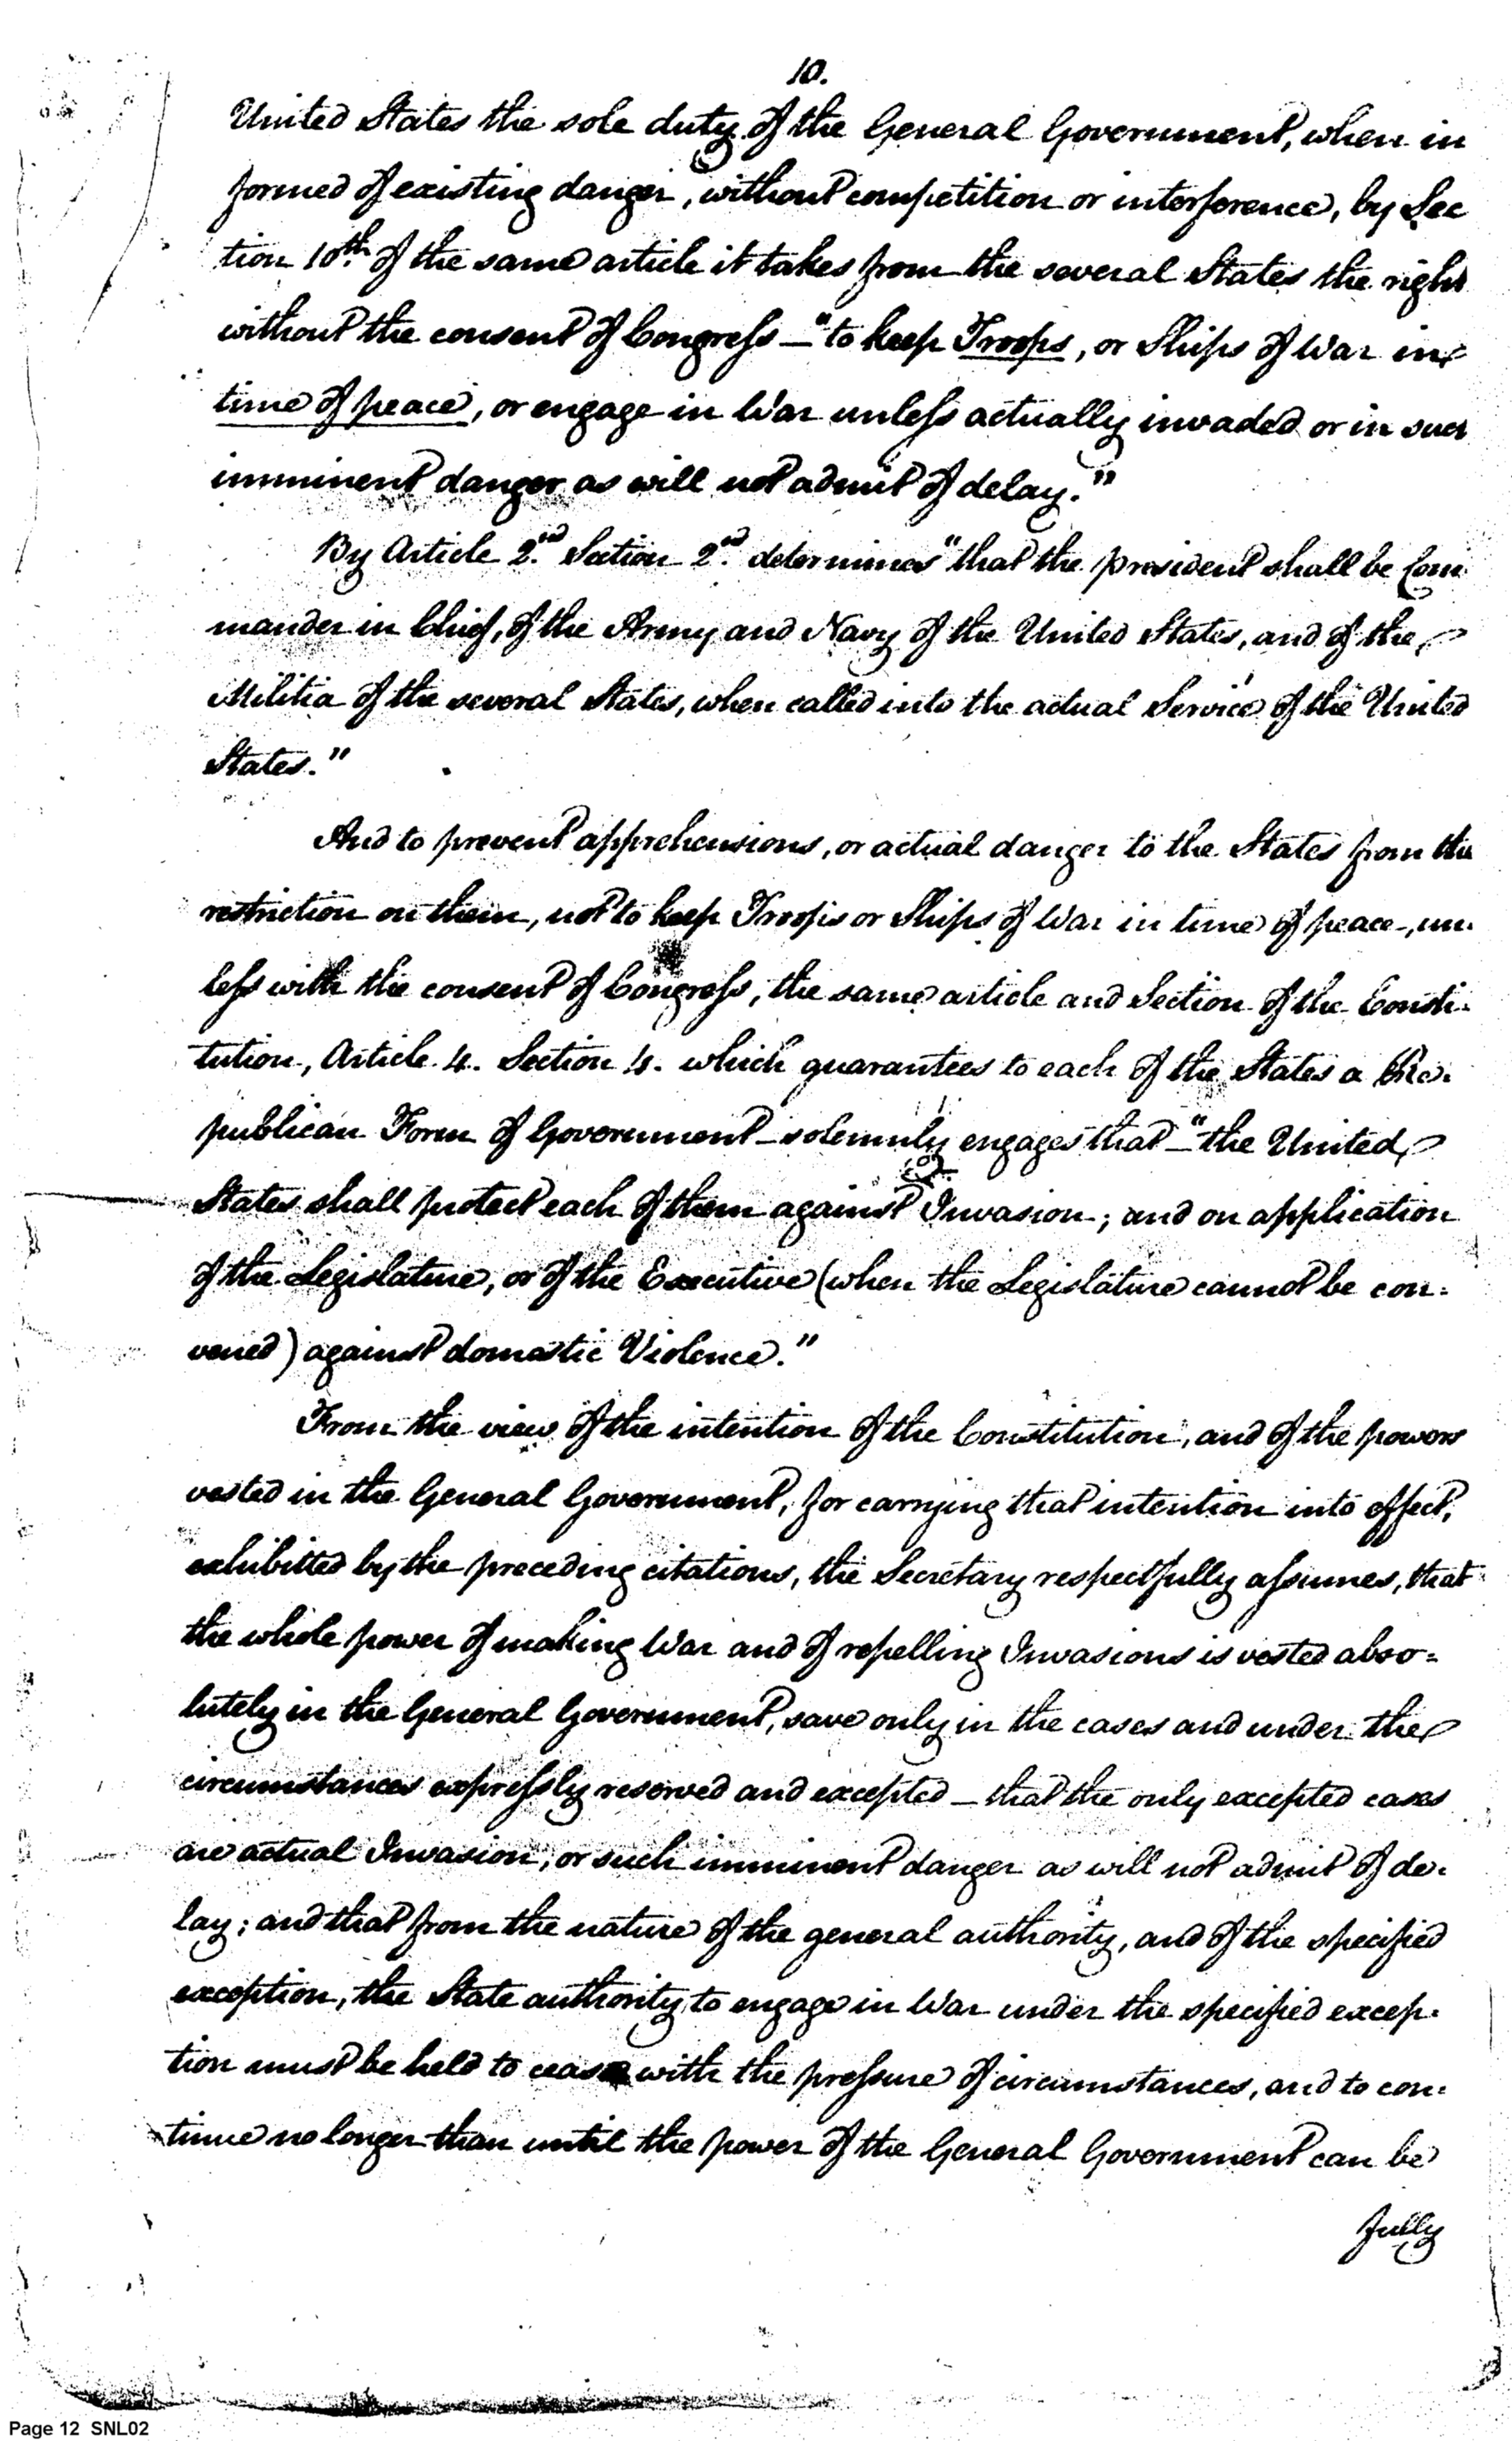 10.
United States the sole duty of the General Government, when in
formed of existing danger, without competition or interference, by Sec
tion 10th. of the same article it takes from the several States the right
without the consent of Congress — "to keep Troops, or Ships of War in
time of peace, or engage in War unless actually invaded or in such
imminent danger as will not admit of delay."
By Article 2nd. Section 2nd. determines "that the president shall be Com
mander in Chief, of the Army and Navy of the United States, and of the
Militia of the several States, when called into the actual Service of the United
States."
And to prevent apprehensions, or actual danger to the States from the
restriction on them, not to keep Troops or Ships of War in time of peace, un-
less with the consent of Congress, the same article and Section of the Consti-
tution, Article 4. Section 4. which guarantees to each of the States a Re-
publican Form of Government — solemnly engages that — "the United
States shall protect each of them against Invasion; and on application
of the Legislature, or of the Executive (when the Legislature cannot be con-
vened) against domestic Violence."
From the view of the intention of the Constitution, and of the powers
vested in the General Government, for carrying that intention into effect,
exhibitted by the preceding citations, the Secretary respectfully assumes, that
the whole power of making War and of repelling Invasions is vested abso=
lutely in the General Government, save only in the cases and under the
circumstances expressly reserved and excepted — that the only excepted cases
are actual Invasion, or such imminent danger as will not admit of de-
lay; and that from the nature of the general authority, and of the specified
exception, the State authority to engage in War under the specified excep-
tion must be held to cease with the pressure of circumstances, and to con-
tinue no longer than until the power of the General Government can be
fully
Page 12 SNL02